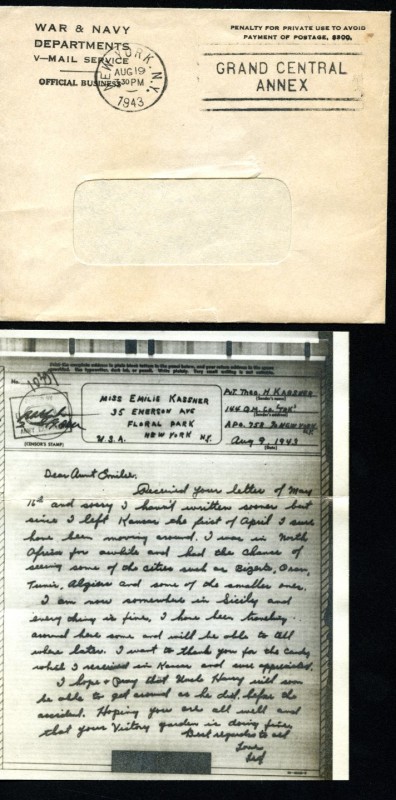 WAR & NAVY
DEPARTMENTS
V—MAIL SERVICE
OFFICIAL BUSINESS
NEW YORK, N.Y.
AUG 19
30 PM
1943
PENALTY FOR PRIVATE USE TO AVOID
PAYMENT OF POSTAGE, $300.
GRAND CENTRAL
ANNEX
Print the complete address in plain block letters in the panel below, and your return address in the space
provided. Use typewriter, dark ink, or pencil. Write plainly. Very small writing is not suitable.
No.
(CENSOR'S STAMP)
MISS EMILIE KASSNER
35 EMERSON AVE
FLORAL PARK
NEW YORK N.Y.
U.S.A.
Pvt Theo. H. Kassner
(Sender's name)
144 Q.M. Co. Trk
(Sender's address)
APO. 758 % NEW YORK
N.Y.
Aug 9, 1943
(Date)
Dear Aunt Emilie,
Received your letter of May
16th and sorry I haven't written sooner but
since I left Kansas the first of April I sure
have been moving around. I was in North
Africa for awhile and had the chance of
seeing some of the cities such as Bizerte, Oran,
Tunis, Algiers and some of the smaller ones.
I am now somewhere in Sicily and
every thing is fine, I have been traveling
around here some and will be able to tell
where later. I want to thank you for the candy
which I received in Kansas and sure appreciated.
I hope & pray that Uncle Harry will soon
be able to get around as he did before the
accident. Hoping you are all well and
that your Victory garden is doing fine.
Best regards to all
Love
Ted